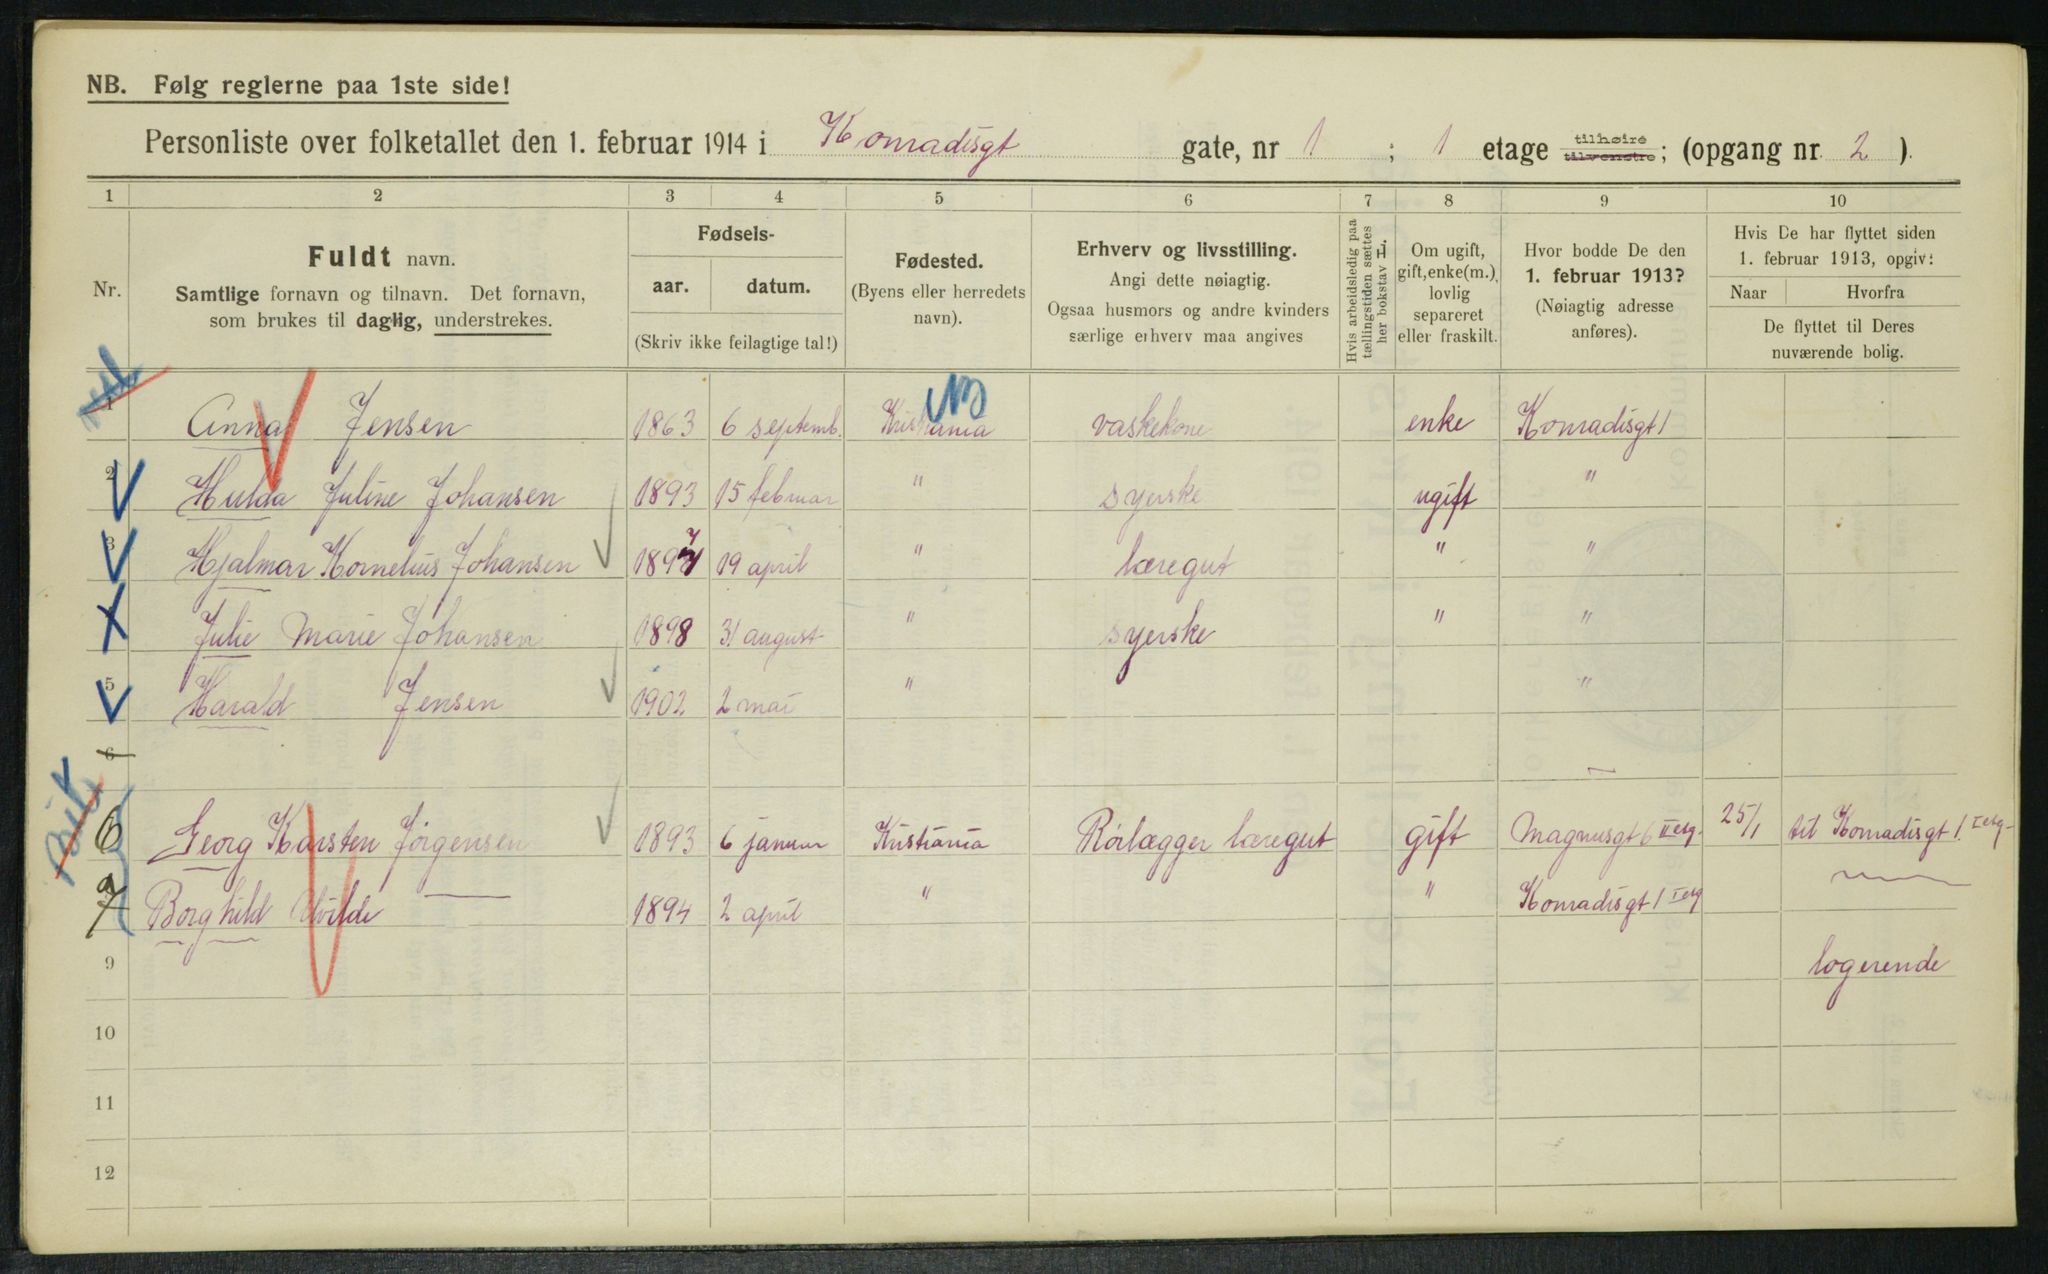 NB. Følg reglerne paa 1ste side!
Personliste over folketallet den 1. februar 1914 i Konradisgt gate, nr 1 ; 1 etage tilhøire tilvenstre; (opgang nr. 2 ).
1 2 3 4 5 6 7 8 9 10
Nr.
Fuldt navn.
Samtlige fornavn og tilnavn. Det fornavn,
som brukes til daglig, understrekes.
Fødsels-
aar. datum.
(Skriv ikke feilagtige tal!)
Fødested.
(Byens eller herredets
navn).
Erhverv og livsstilling.
Angi dette nøiagtig.
Ogsaa husmors og andre kvinders
særlige erhverv maa angives
Hvis arbeidsledig paa
tællingstiden sættes
her bokstav L.
Om ugift,
gift, enke(m.),
lovlig
separeret
eller fraskilt.
Hvor bodde De den
1. februar 1913?
(Nøiagtig adresse
anføres).
Hvis De har flyttet siden
1. februar 1913, opgiv:
Naar Hvorfra
De flyttet til Deres
nuværende bolig.
1 Anna Jensen 1863 6 septemb. Kristiania vaskekone enke Konradisgt 1
2 Hulda Juline Johansen 1893 15 februar " syerske ugift "
3 Hjalmar Kornelius Johansen 1897 19 april " læregut " "
Julie Marie Johansen 1898 31 august " syerske " "
5 Harald Jensen 1902 2 mai " "
6
6 Georg Karsten Jørgensen 1893 6 januar Kristiania Rørlægger læregut gift Magnusgt 6 II etg. 25/1 til Konradisgt 1. I etg.
7 Borghild Alvilde — 1894 2 april " " Konradisgt 1 I etg
9 logerende
10
11
12